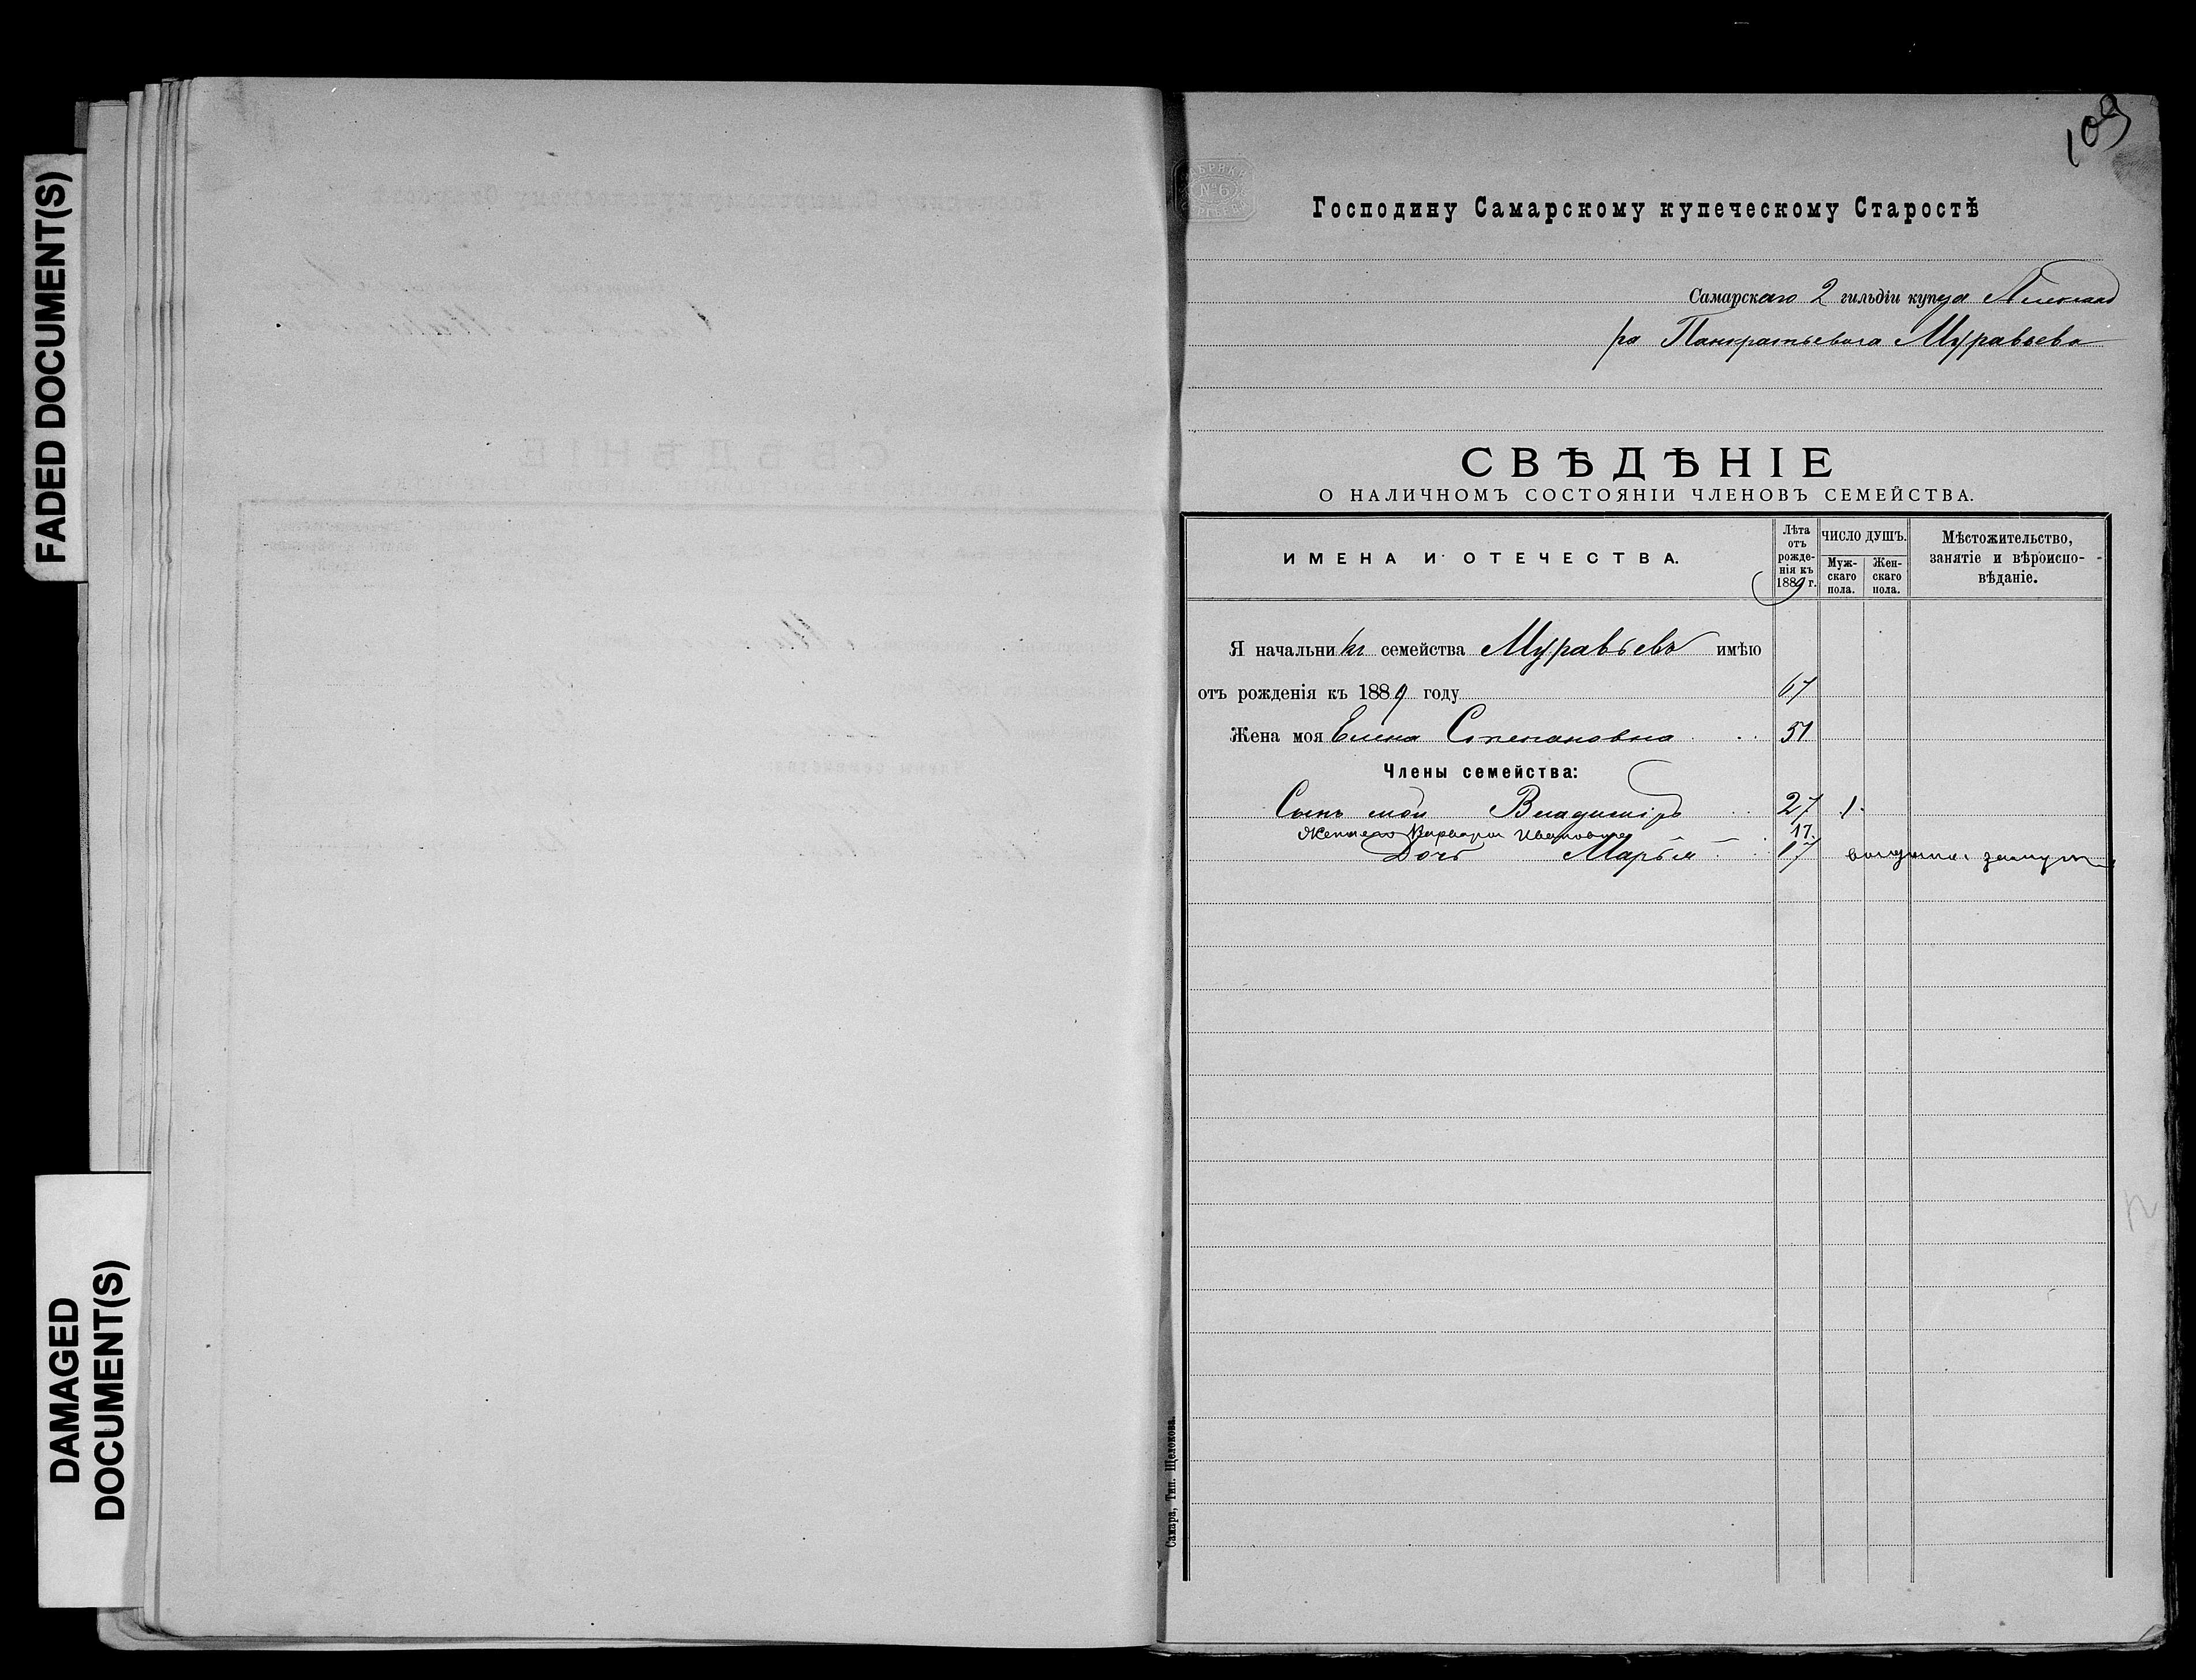 FADED DOCUMENT(S)
DAMAGED
DOCUMENT(S)
109
№6
Господину Самарскому купеческому Старостѣ
Самарскаго 2 гильдіи купца Александ
ра Панкратьевича Муравьева
СВѢДѢНІЕ
О НАЛИЧНОМЪ СОСТОЯНІИ ЧЛЕНОВЪ СЕМЕЙСТВА.
ИМЕНА И ОТЕЧЕСТВА.
Лѣта отъ рожденія къ 1889 г.
ЧИСЛО ДУШЪ.
Мужскаго пола.
Женскаго пола.
Мѣстожительство, занятіе и вѣроисповѣданіе.
Я начальникъ семейства Муравьевъ имѣю
отъ рожденія къ 1889 году 67
Жена моя Елена Степановна 51
Члены семейства:
Сынъ мой Владиміръ 27 1
Жена его Варвара Ивановна 17.
Дочь Марья 17 выдана замуж
Самара, Тип. Щелокова.